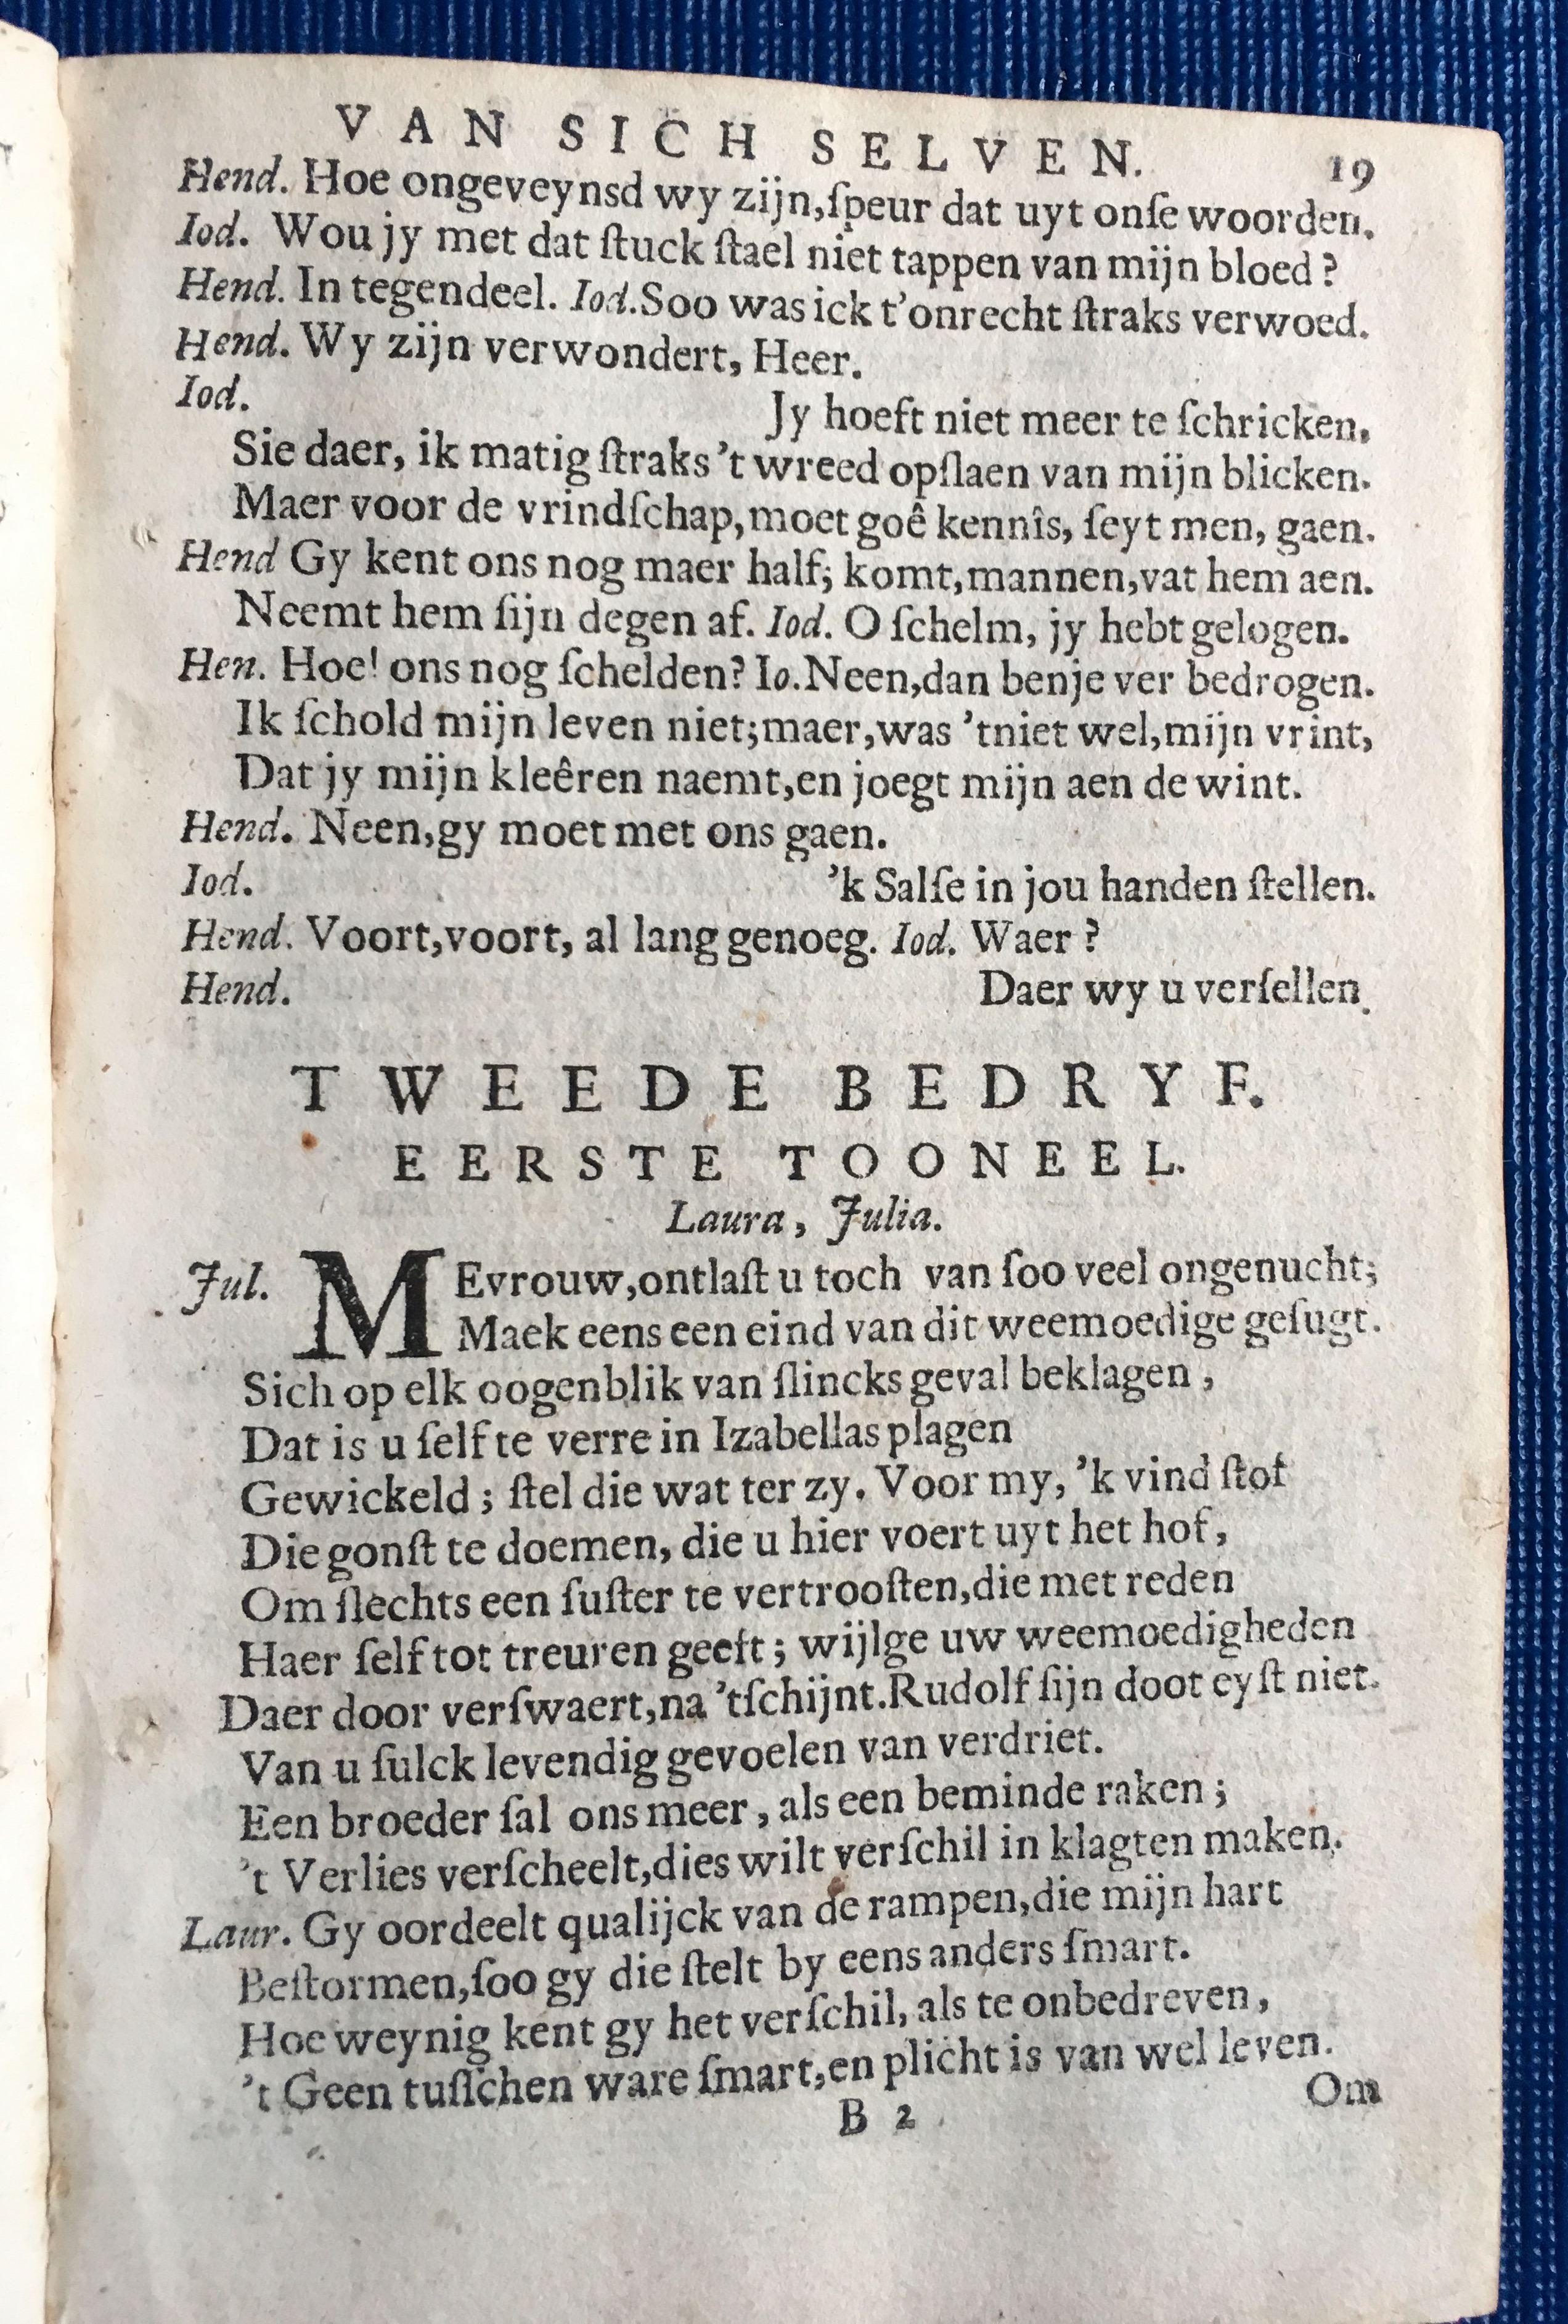 VAN SICH SELVEN. 19
Hend. Hoe ongeveynsd wy zijn,ſpeur dat uyt onſe woorden.
Iod. Wou jy met dat ſtuck ſtael niet tappen van mijn bloed?
Hend. In tegendeel. Iod.Soo was ick t'onrecht ſtraks verwoed.
Hend. Wy zijn verwondert, Heer.
Iod. Jy hoeft niet meer te ſchricken.
Sie daer, ik matig ſtraks 't wreed opſlaen van mijn blicken.
Maer voor de vrindſchap,moet goê kennîs, ſeyt men, gaen.
Hend Gy kent ons nog maer half; komt,mannen,vat hem aen.
Neemt hem ſijn degen af. Iod. O ſchelm, jy hebt gelogen.
Hen. Hoe! ons nog ſchelden? Io.Neen,dan benje ver bedrogen.
Ik ſchold mijn leven niet;maer,was 'tniet wel,mijn vrint,
Dat jy mijn kleêren naemt,en joegt mijn aen de wint.
Hend. Neen,gy moet met ons gaen.
Iod. 'k Salſe in jou handen ſtellen.
Hend. Voort,voort, al lang genoeg. Iod. Waer?
Hend. Daer wy u verſellen.
TWEEDE BEDRYF.
EERSTE TOONEEL.
Laura, Julia.
Jul. MEvrouw,ontlaſt u toch van ſoo veel ongenucht;
Maek eens een eind van dit weemoedige geſugt.
Sich op elk oogenblik van ſlincks geval beklagen,
Dat is u ſelf te verre in Izabellas plagen
Gewickeld; ſtel die wat ter zy. Voor my, 'k vind ſtof
Die gonſt te doemen, die u hier voert uyt het hof,
Om ſlechts een ſuſter te vertrooſten,die met reden
Haer ſelf tot treuren geeft; wijlge uw weemoedigheden
Daer door verſwaert,na 'tſchijnt.Rudolf ſijn doot eyſt niet.
Van u ſulck levendig gevoelen van verdriet.
Een broeder ſal ons meer, als een beminde raken;
't Verlies verſcheelt,dies wilt verſchil in klagten maken.
Laur. Gy oordeelt qualijck van de rampen,die mijn hart
Beſtormen,ſoo gy die ſtelt by eens anders ſmart.
Hoe weynig kent gy het verſchil, als te onbedreven,
't Geen tuſſchen ware ſmart,en plicht is van wel leven.
B 2 Om